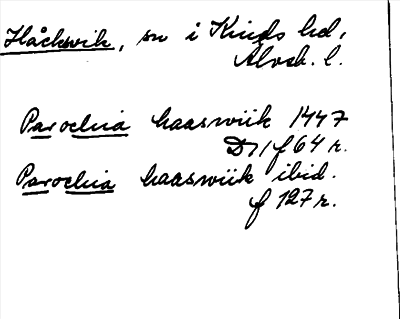 Håckvik, sn i Kinds hd,
Älvsb. l.
Parochia haaswiik 1447
D 11 f 64 r.
Parochia haaswiik ibid.
f 127 r.